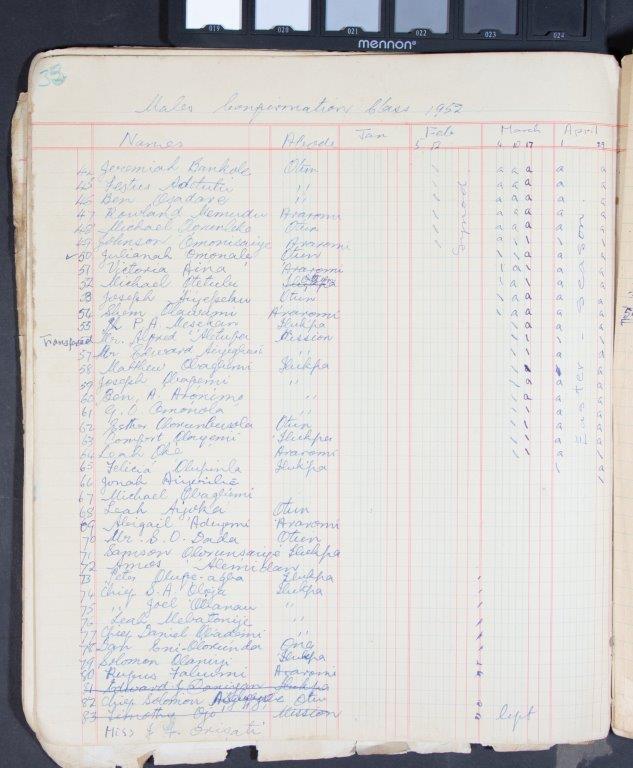 019 020 021 022 023 024
mennon
33
Males Confirmation Class 1952
Names Abode Jan Feb March April
5 12 4 10 17 1 29
44 Jeremiah Bankole Otun
45 Festus Adetutu ,,
46 Ben Osadare ,,
47 Rowland Araromi
48 Michael Otun
49 Johnson Omonusaiye Araromi
50 Julianah Omonale Otun
51 Victoria Aina Araromi
52 Michael Otetubi
53 Joseph Otun
54 Shem Olawumi Araromi
55 P. A. Mesekan Ilukpa
Mr. Alfred Aletupa Mission
57 Mr. Edward ,,
58 Matthew Obagbemi Ilukpa
59 Joseph Obapemi ,,
60 Ben, A. Aronimo ,,
61 G. O. Omonola ,,
62 Esther Olorunbusola Otun
63 Comfort Olayemi Ilukpa
64 Leah Oke Araromi
65 Felicia Olupinla Ilukpa
66 Jonah
67 Michael Obagbemi
68 Leah Ayoka Otun
69 Abigail Aduyomi Araromi
70 Mr. S. O. Dada Otun
71 Samson Olorunsaiye Ilukpa
72 Amos Alemidlan
73 Peter Olupe-agba Ilukpa
74 Chief S. A. Oloja Ilukpa
75 ,, Joel Obanau ,,
76 Leah Mebatoniye ,,
77 Chief Daniel Obademi ,,
78 Dan Eni-Olorunda
79 Solomon Olaniyi Ilukpa
80 Rufus Falusmi Araromi
81 Edward Ilukpa
82 Chief Solomon Otun
83 Timothy Ojo Mission left
Miss
Synod.
Easter - Season.